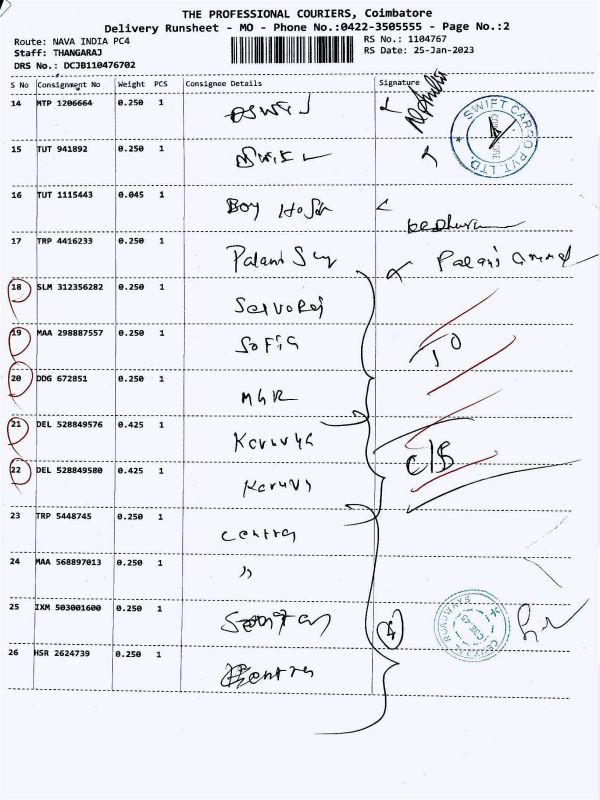 THE PROFESSIONAL COURIERS, Coimbatore
Delivery Runsheet - MO - Phone No.:0422-3505555 - Page No.:2
Route: NAVA INDIA PC4 RS No.: 1104767
Staff: THANGARAJ RS Date: 25-Jan-2023
DRS No.: DCJB110476702
S No Consignment No Weight PCS Consignee Details Signature
14 MTP 1206664 0.250 1
SWIFT CARGO PVT. LTD.
15 TUT 941892 0.250 1
16 TUT 1115443 0.045 1 Boy
17 TRP 4416233 0.250 1 Palani
Palani
18 SLM 312356282 0.250 1 Selvaraj
19 MAA 298887557 0.250 1 Sofia
20 DDG 672851 0.250 1 MGR
21 DEL 528849576 0.425 1
22 DEL 528849580 0.425 1
C/S
23 TRP 5448745 0.250 1 Centra
24 MAA 568897013 0.250 1 "
25 IXM 503001600 0.250 1
4
ROADWAYS
26 HSR 2624739 0.250 1 Centra